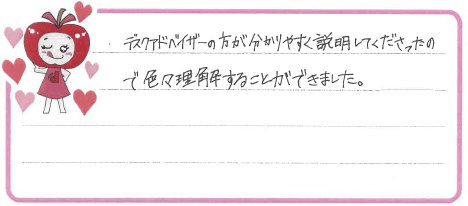 デスクアドベイザーの方が分かりやすく説明してくださったの
で色々理解することができました。